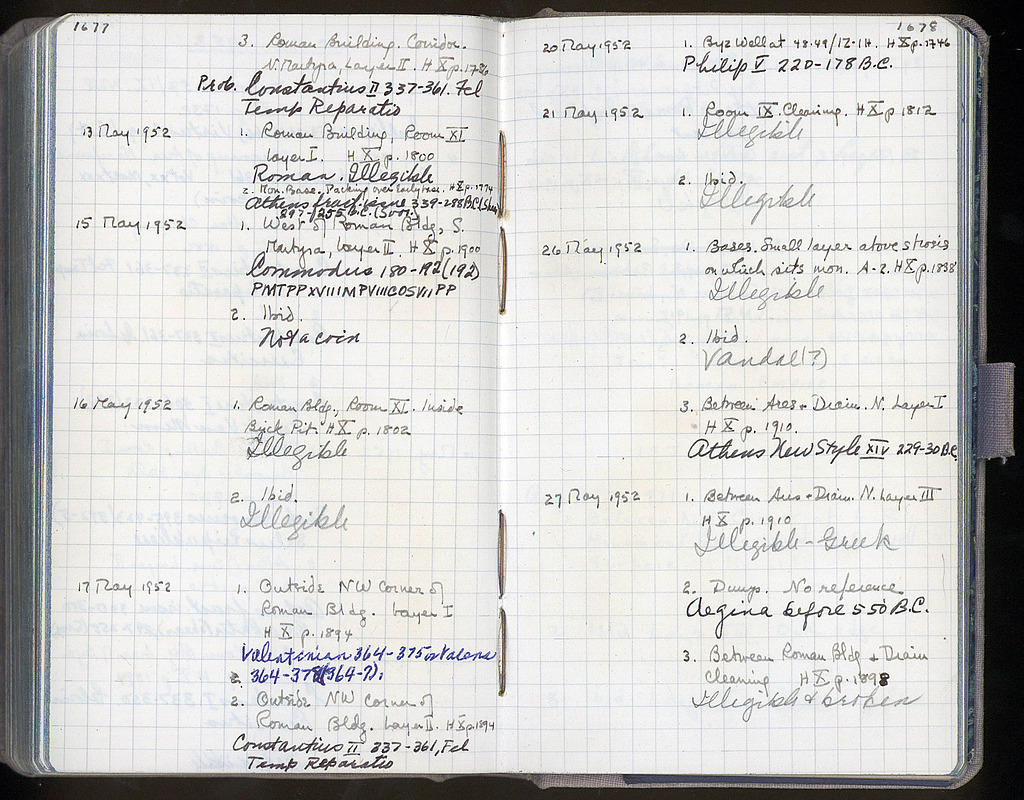 1677
3. Roman Building. Corridor.
N. Martyra, Layer II. H X p. 1786
Prob. Constantius II 337-361. Fel
Temp Reparatio
13 May 1952
1. Roman Building, Room XI
Layer I. H X p. 1800
Roman. Illegible
2. Mon. Base. Packing over Early H X p. 1774
Athens issue 339-288 B.C.
297-/255 B.C. (Svor.)
15 May 1952
1. West of Roman Bldg, S.
Martyra, Layer II. H X p. 1900
Commodus 180-192 (192)
PMTPPXVIIIMPVIIICOSVIIPP
2. Ibid.
Not a coin
16 May 1952
1. Roman Bldg., Room XI. Inside
Pit. H X p. 1802
Illegible
2. Ibid.
Illegible
17 May 1952
1. Outside NW Corner of
Roman Bldg. Layer I
H X p. 1894
Valentinian 364-375 or Valens
2. 364-378 (364-7);
2. Outside NW Corner of
Roman Bldg. Layer II. H X p. 1894
Constantius II 337-361, Fel
Temp Reparatio
1678
20 May 1952
1. Byz Well at 48.49/12-14. H X p. 1746
Philip V 220-178 B.C.
21 May 1952
1. Room IX. Cleaning. H X p 1812
Illegible
2. Ibid.
Illegible
26 May 1952
1. Bases. Small layer above strosis
on which sits mon. A-2. H X p. 1838
Illegible
2. Ibid.
Vandal (?)
3. Between Ares + Drain. N. Layer I
H X p. 1910.
Athens New Style XIV 229-30 B.C.
27 May 1952
1. Between Ares + Drain. N. Layer III
H X p. 1910
Illegible - Greek
2. Dump. No reference
Aegina before 550 B.C.
3. Between Roman Bldg + Drain
Cleaning H X p. 1898
Illegible & broken